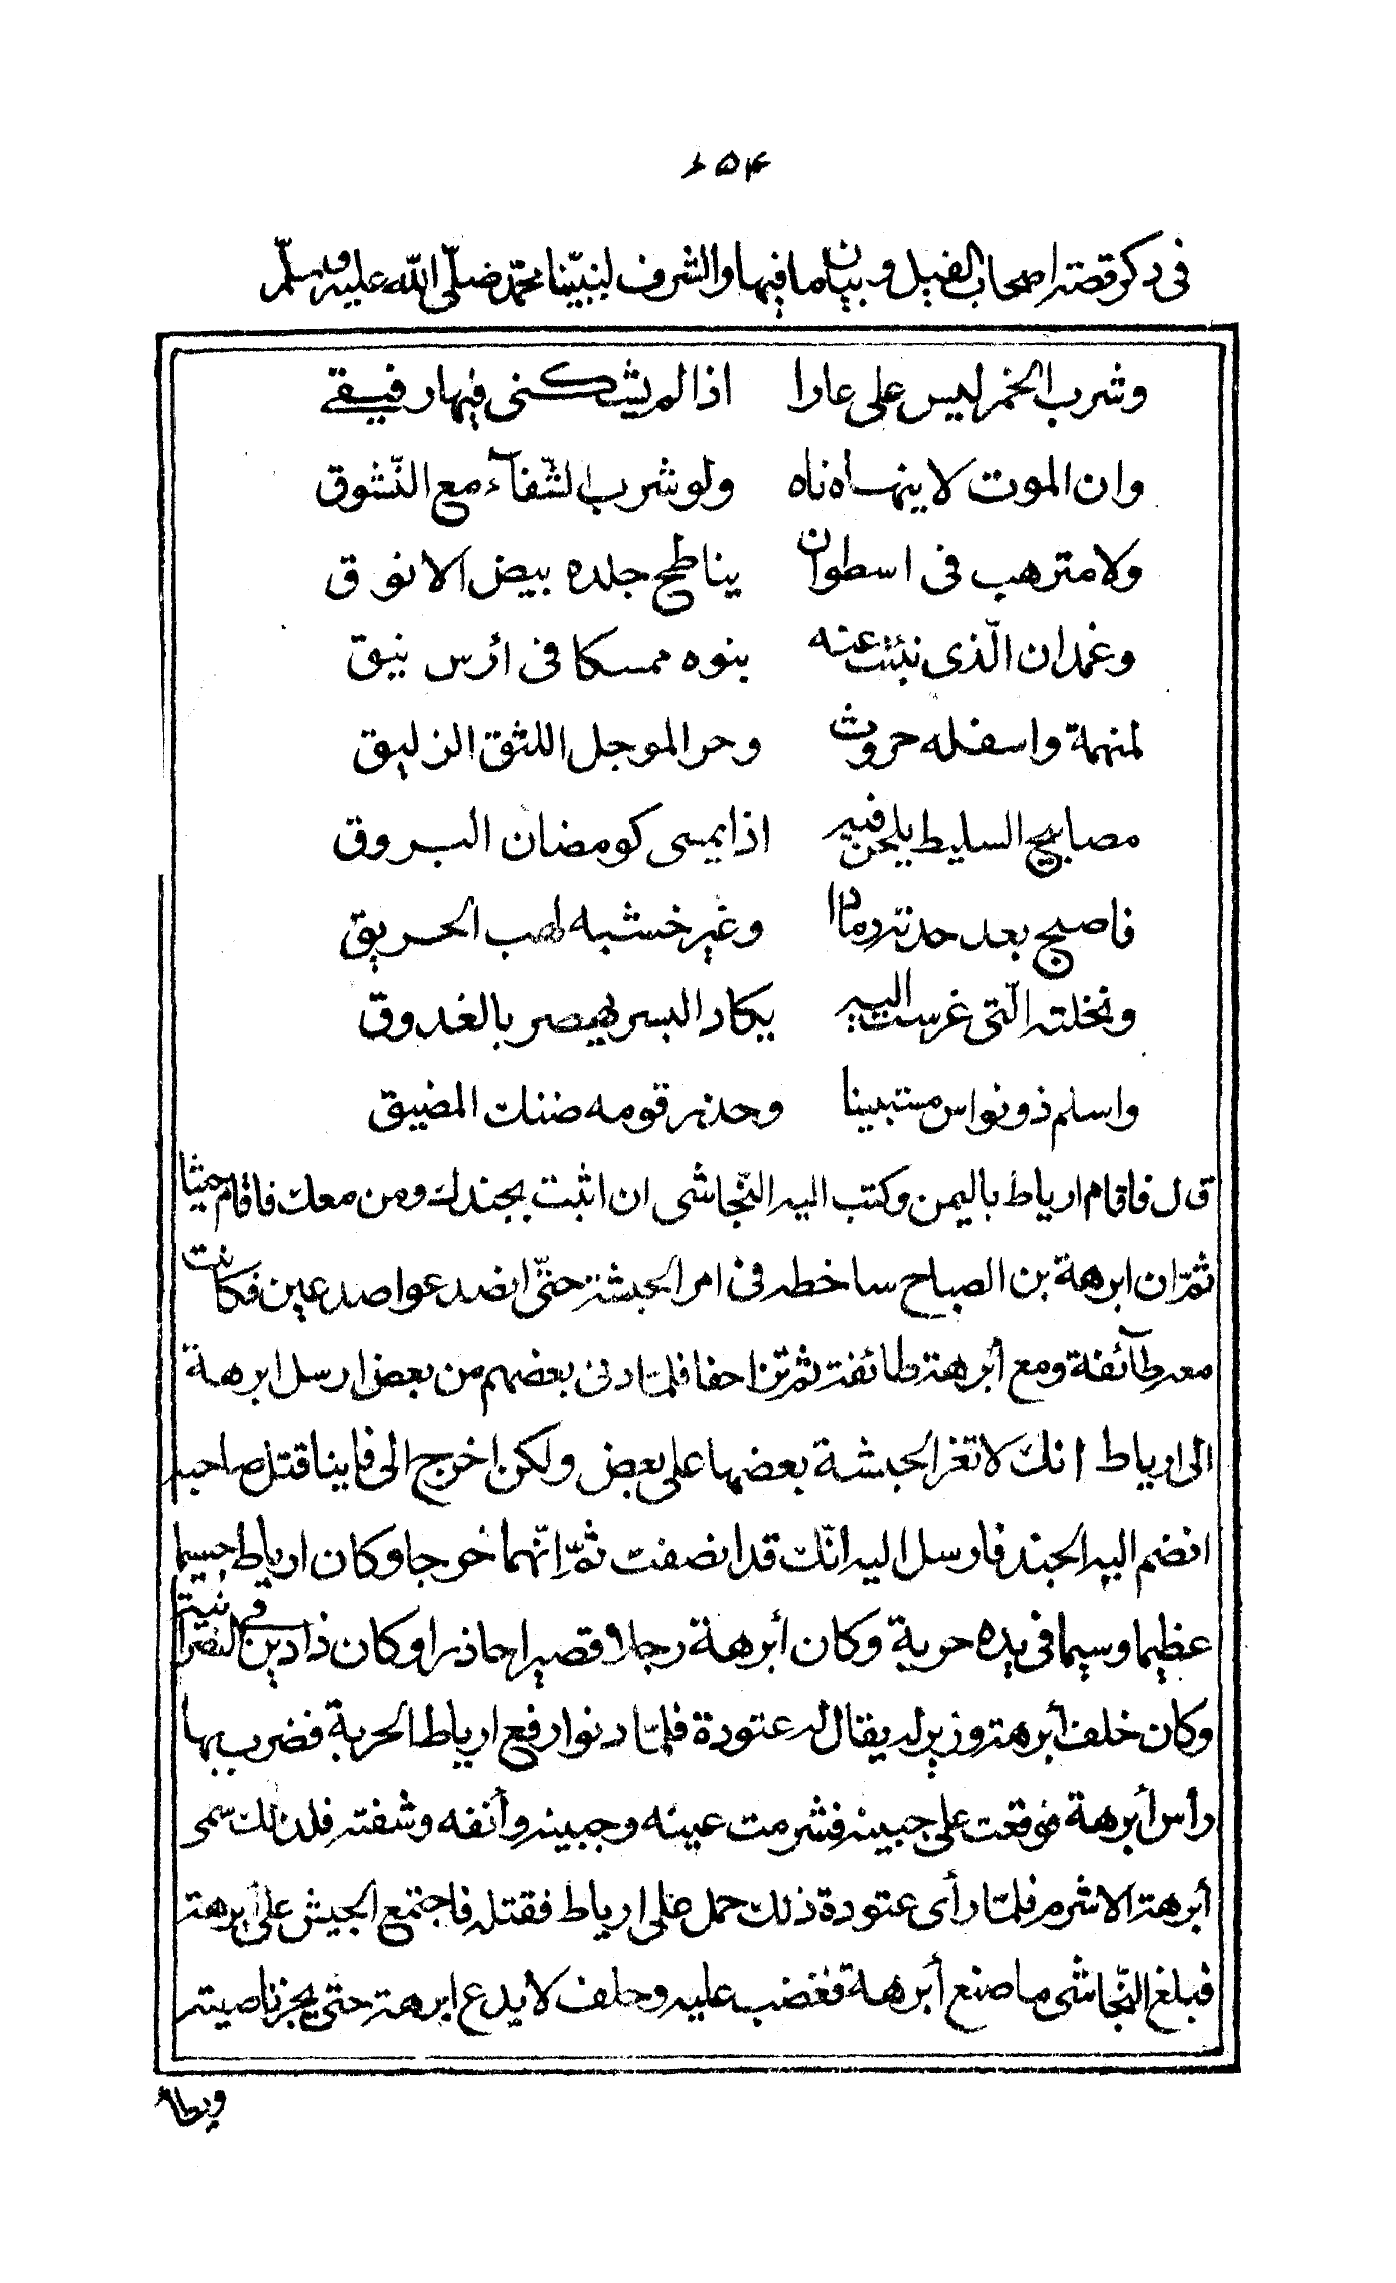 ۶۵۴
في ذكر قصة اصحاب الفيل وبيان ما فيها والشرف لنبيّنا محمّد صلّى اللّه عليه وسلّم
وشرب الخمر ليس على عارا اذا لم يشكنى فيها رفيقے
وان الموت لا ينهاه ناه ولو شرب الشّفآء مع النّشوق
ولا مترهب فى اسطوان يناطح جلده بيض الانوق
وغمدان الّذى نبئت عنه بنوه ممسكا فى ائرس نيق
لمنهمة واسفله حروث وحر الموجل اللثق الزليق
مصابيح السليط يلحن فيه اذا يمسى كومضان البروق
فاصبح بعد حدته رمادا وغير خشبه لهب الحريق
ونخلته الّتى غرست اليه يكاد البسر يهصر بالغدوق
واسلم ذونواس مستبينا وحذر قومه ضنك المضيق
قال فاقام ارياط باليمن وكتب اليه النّجاشى ان اثبت بجندك ومن معك فاقام حيثا
ثمّ ان ابرهة بن الصباح ساخطه فى امر الحبشة حتّى انصدعوا صدعين فكانت
معه طآئفة ومع أبرهة طائفة ثم تزاحفا فلمّا دنى بعضهم من بعض ارسل ابرهة
الى ارياط انك لا تغز الحبشة بعضها على بعض ولكن اخرج الى فاينا قتل صاحبه
انضم اليه الجند فارسل اليه انّك قد انصفت ثمّ انّهما خرجا وكان ارياط جسيما
عظيما وسيما فى يده حربة وكان أبرهة رجلا قصيرا حاذرا وكان ذا دين فے النصرانية
وكان خلف أبرهة وزير له يقال له عتودة فلمّا دنوا رفع ارياط الحربة فضرب بها
رأس أبرهة فوقعت على جبينه فشرمت عينه وجبينه وأنفه وشفته فلذلك سمى
أبرهة الاشرم فلمّا رأى عتودة ذلك حمل على ارياط فقتله فاجتمع الجيش على أبرهة
فبلغ النّجاشى ما صنع أبرهة فغضب عليه وحلف لا يدع ابرهة حتى يجز ناصيته
ويطأ